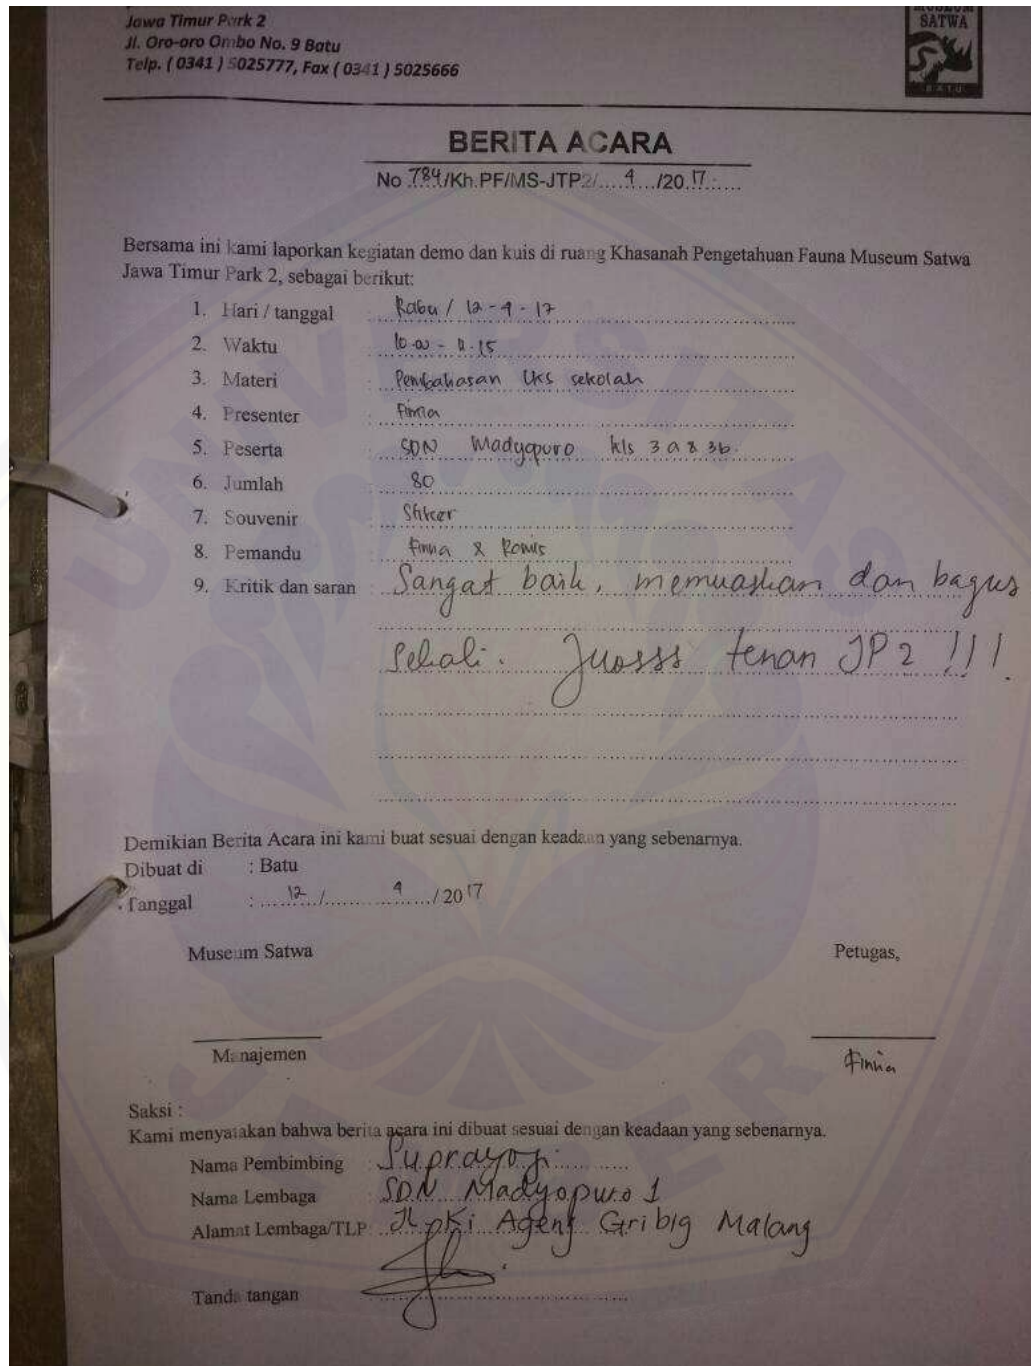 Jawa Timur Park 2
Jl. Oro-oro Ombo No. 9 Batu
Telp. ( 0341 ) 5025777, Fax ( 0341 ) 5025666
MUSEUM
SATWA
BATU
BERITA ACARA
No 784/Kh.PF/MS-JTP2/....4.../20.17......
Bersama ini kami laporkan kegiatan demo dan kuis di ruang Khasanah Pengetahuan Fauna Museum Satwa
Jawa Timur Park 2, sebagai berikut:
1. Hari / tanggal : Rabu / 12-4-17
2. Waktu : 10.00 - 11.15
3. Materi : Pembahasan LKS sekolah
4. Presenter : Finna
5. Peserta : SDN Madyopuro kls 3a & 3b.
6. Jumlah : 80
7. Souvenir : Stiker
8. Pemandu : Finna &
9. Kritik dan saran : Sangat baik, memuaskan dan bagus
sekali. Juosss tenan JP2 !!!
Demikian Berita Acara ini kami buat sesuai dengan keadaan yang sebenarnya.
Dibuat di : Batu
Tanggal : 12 / 4 / 2017
Museum Satwa Petugas,
Manajemen Finna
Saksi :
Kami menyatakan bahwa berita acara ini dibuat sesuai dengan keadaan yang sebenarnya.
Nama Pembimbing : Suprayogi
Nama Lembaga : SDN Madyopuro 1
Alamat Lembaga/TLP : Jl. Ki Ageng Gribig Malang
Tanda tangan
UNIVERSITAS
JEMBER